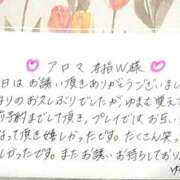 アロマ 本指W様
日はお誘い頂きありがとうございまし
はりのお久しぶりでしたが、ゆまを覚えて
前予約までして頂き、プレイではお互い
なって頂き嬉しかったです。たくさん笑っ
しかったです。またお誘いお待ちしており
ゆ